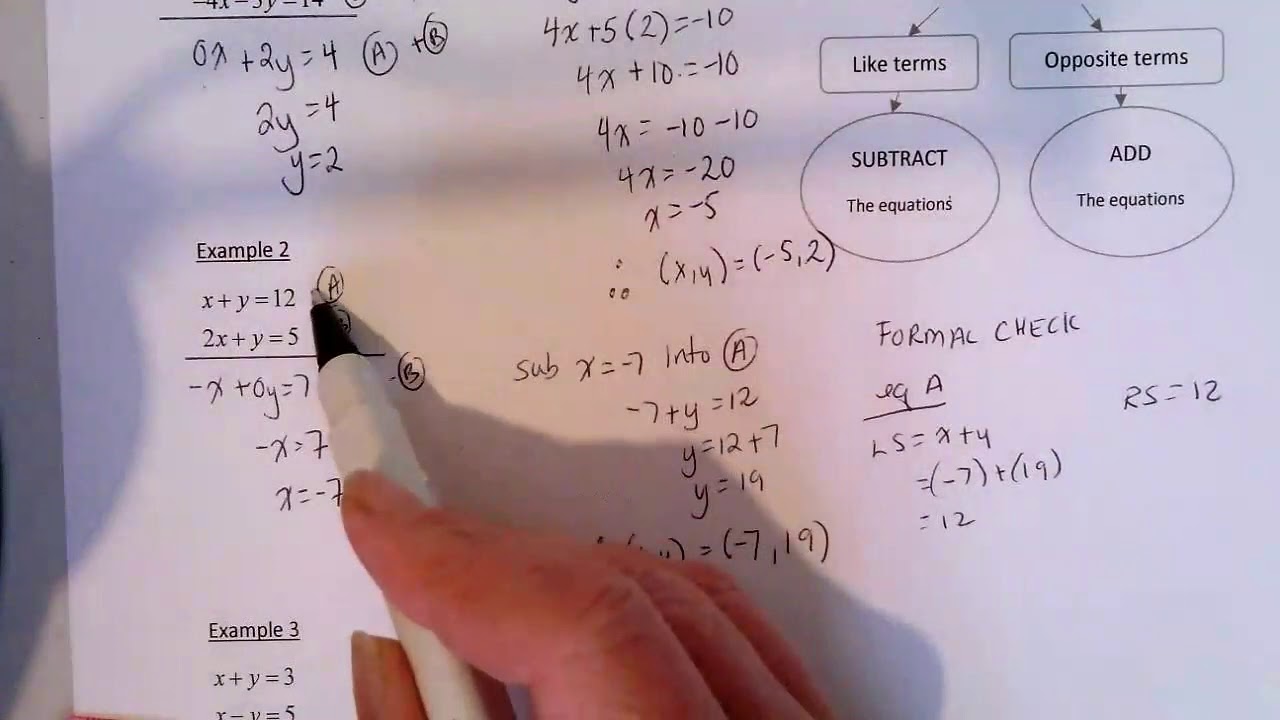 -4x-5y=14
0x+2y=4 Ⓐ+Ⓑ
2y=4
y=2
4x+5(2)=-10
4x+10=-10
4x=-10-10
4x=-20
x=-5
∴ (x,y)=(-5,2)
Like terms
Opposite terms
SUBTRACT
The equations
ADD
The equations
Example 2
x+y=12 Ⓐ
2x+y=5 Ⓑ
-x+0y=7 -Ⓑ
-x=7
x=-7
sub x=-7 into Ⓐ
-7+y=12
y=12+7
y=19
=(-7,19)
FORMAL CHECK
eq A
LS=x+y
=(-7)+(19)
=12
RS=12
Example 3
x+y=3
x-y=5